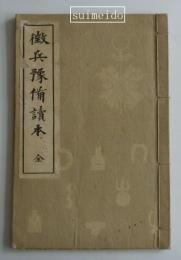 suimeido
徴兵豫備讀本 全